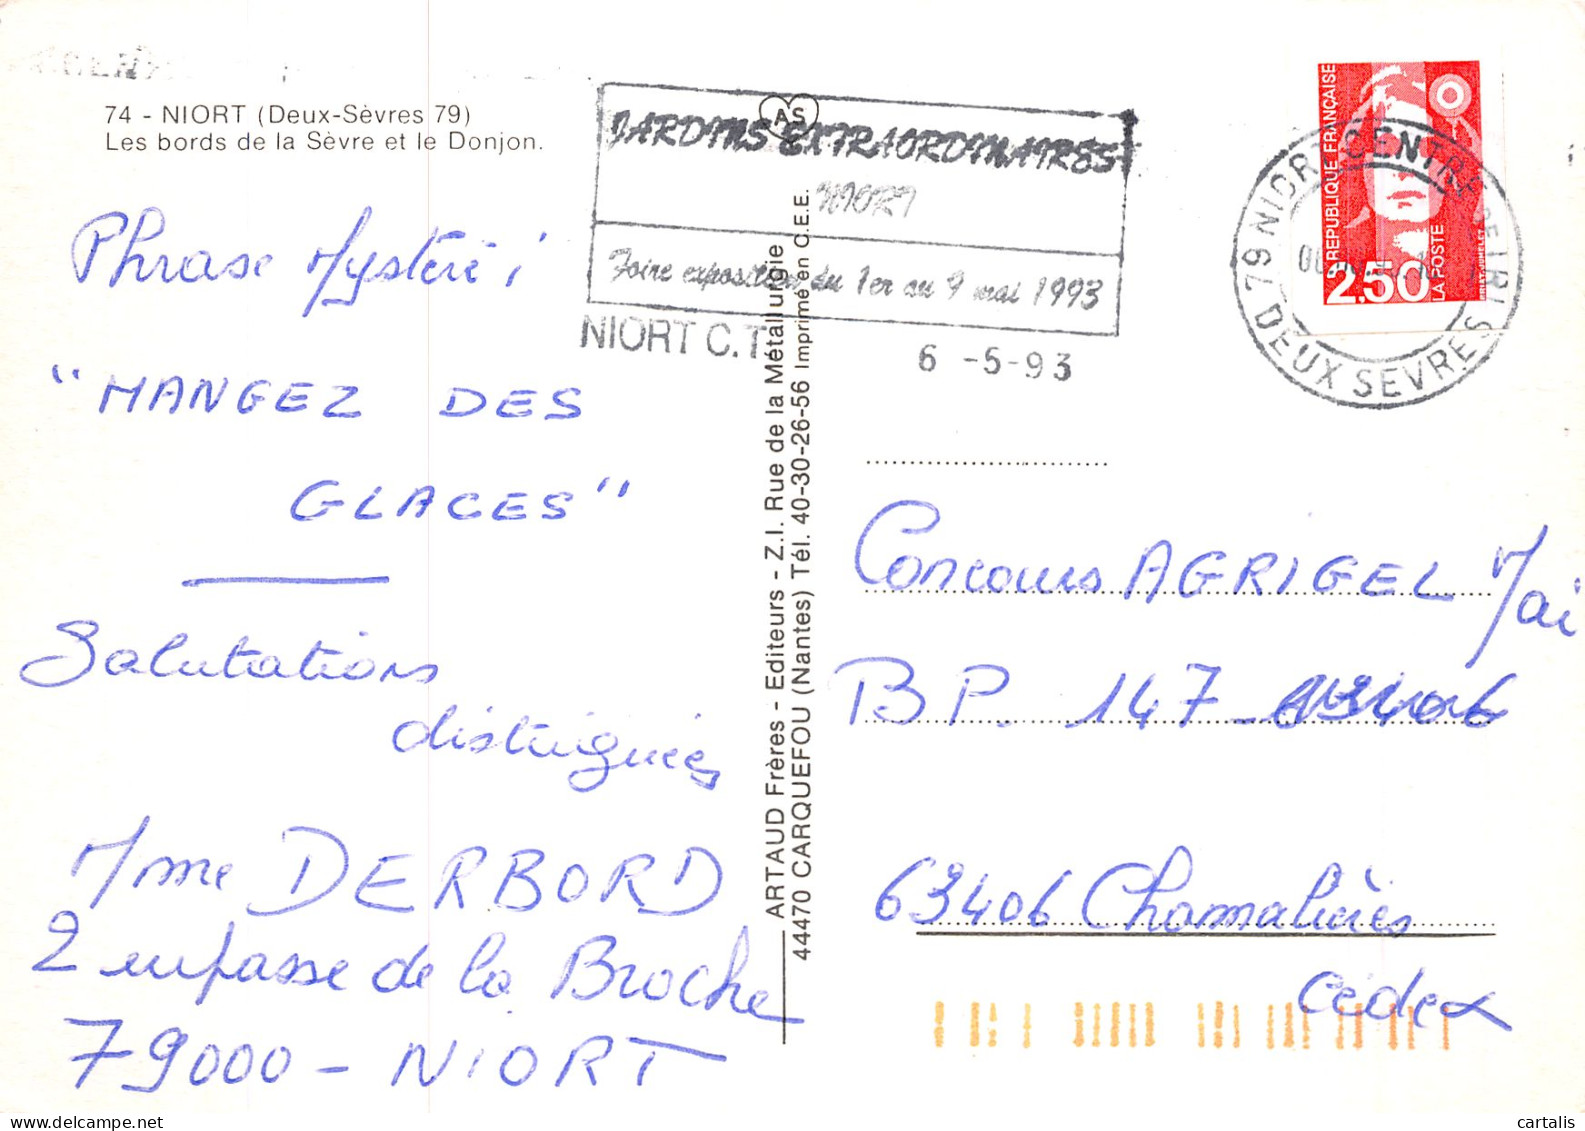 74 - NIORT (Deux-Sèvres 79)
Les bords de la Sèvre et le Donjon.
Phrase Mystère :
"MANGEZ DES
GLACES"
Salutations
distinguées
Mme DERBORD
2 impasse de la Broche
79000 - NIORT
AS
JARDINS EXTRAORDINAIRES
NIORT
Foire exposition du 1er au 9 mai 1993
NIORT C.T
6 -5-93
ARTAUD Frères - Editeurs - Z.I. Rue de la Métallurgie
44470 CARQUEFOU (Nantes) Tél. 40-30-26-56 Imprimé en C.E.E.
REPUBLIQUE FRANÇAISE
2,50
LA POSTE
79 NIORT CENTRE DE TRI
DEUX SEVRES
Concours AGRIGEL Mai
BP. 147
63406 Chamalières
Cédex
cartalis